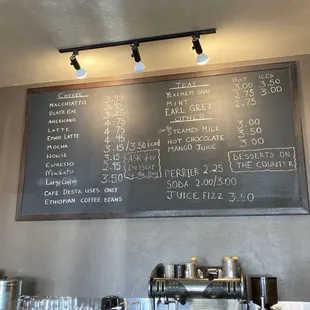 COFFEE
MACCHIATTO 3.95
BLACK EYE
AMERICANO
LATTE 4.75
ETHIO LATTE
MOCHA
HOUSE 3.15
ESPRESSO 2.95
Macchiato
Large Coffee 3.50
3.50 iced
ASK for
Dessert
of the Day
CAFE DESTA USES ONLY
ETHIOPIAN COFFEE BEANS
TEAS HOT ICED
YEKEMEM SHAI 3.00 3.50
MINT 2.75 3.00
EARL GREY 2.75
OTHER
STEAMED MILK 3.00
HOT CHOCOLATE 3.50
MANGO JUICE 3.00
DESSERTS ON
THE COUNTER
PERRIER 2.25
SODA 2.00/3.00
JUICE FIZZ 3.50